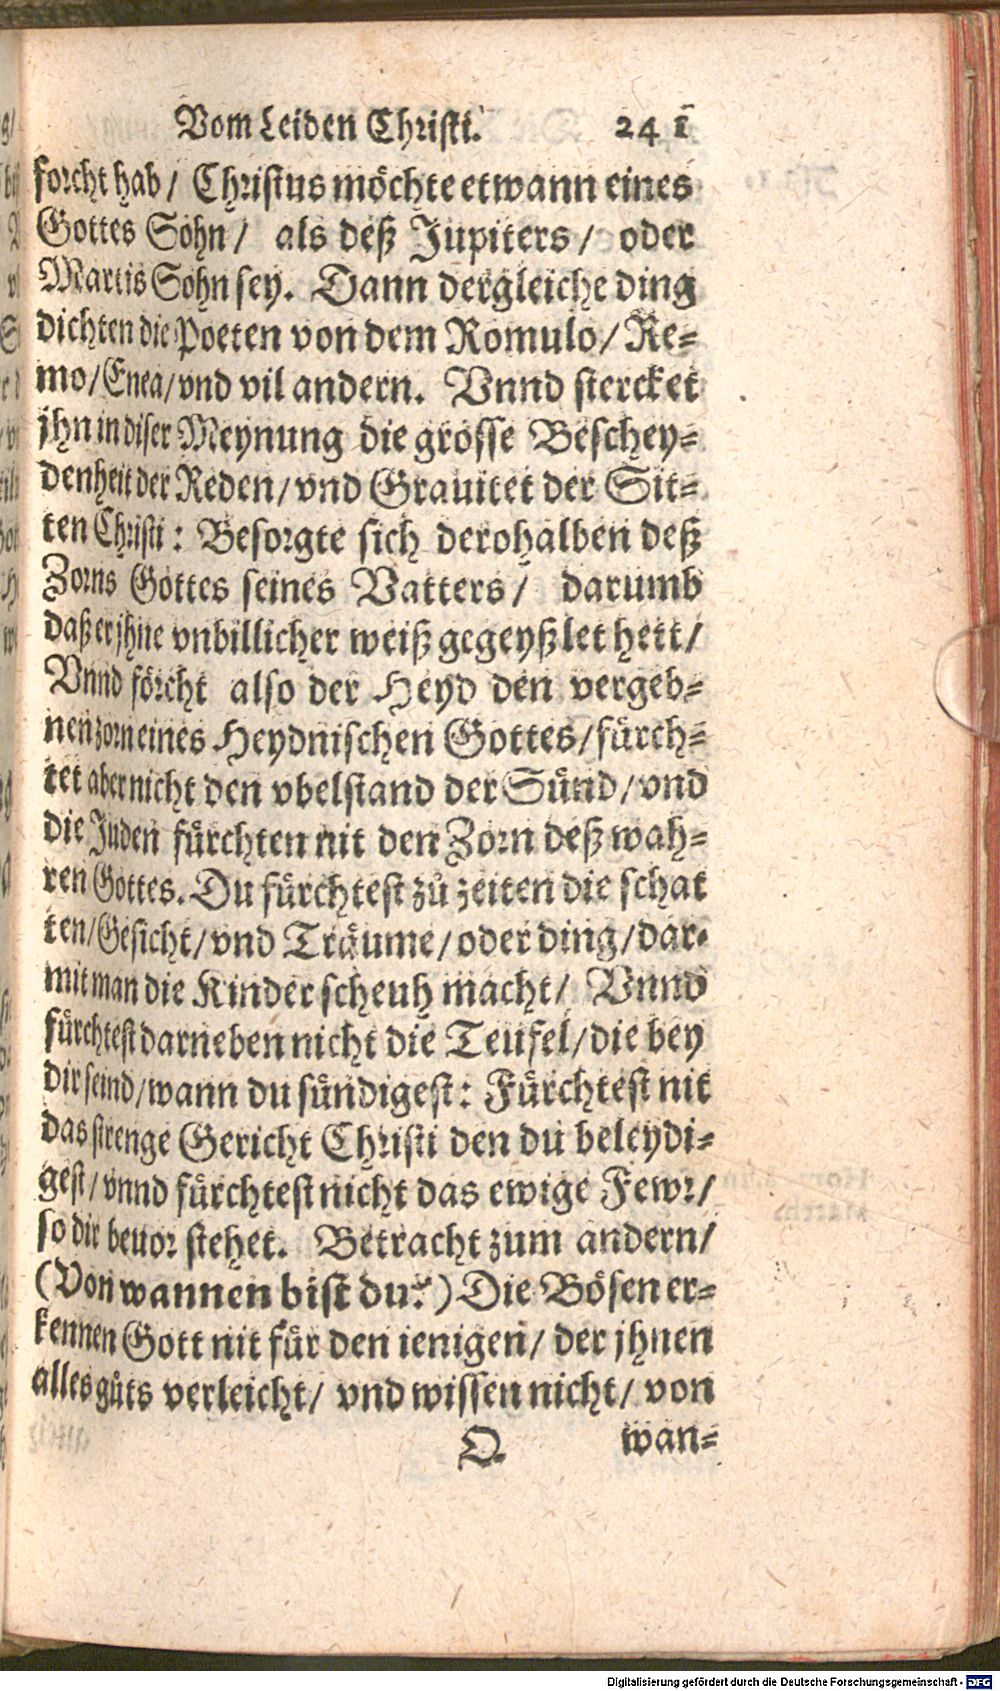 Vom Leiden Christi. 241
forcht hab/ Christus möchte etwann eines
Gottes Sohn/ als deß Jupiters/ oder
Martis Sohn sey. Dann dergleiche ding
dichten die Poeten von dem Romulo/ Re=
mo/ Enea/ vnd vil andern. Vnnd stercket
jhn in diser Meynung die grosse Beschey=
denheit der Reden/ vnd Grauitet der Sit=
ten Christi: Besorgte sich derohalben deß
Zorns Gottes seines Vatters/ darumb
daß er jhne vnbillicher weiß gegeyßlet hett/
Vnnd förcht also der Heyd den vergeb=
nen zorn eines Heydnischen Gottes/ fürch=
tet aber nicht den vbelstand der Sünd/ vnd
die Juden fürchten nit den Zorn deß wah=
ren Gottes. Du fürchtest zů zeiten die schat
ten/ Gesicht/ vnd Träume/ oder ding/ dar=
mit man die Kinder scheuh macht/ Vnnd
fürchtest darneben nicht die Teufel/ die bey
dir seind/ wann du sündigest: Fürchtest nit
das strenge Gericht Christi den du beleydi=
gest/ vnnd fürchtest nicht das ewige Fewr/
so dir beuor stehet. Betracht zum andern/
(Von wannen bist du?) Die Bösen er=
kennen Gott nit für den ienigen/ der jhnen
alles gůts verleicht/ vnd wissen nicht/ von
Q wan=
Digitalisierung gefördert durch die Deutsche Forschungsgemeinschaft - DFG